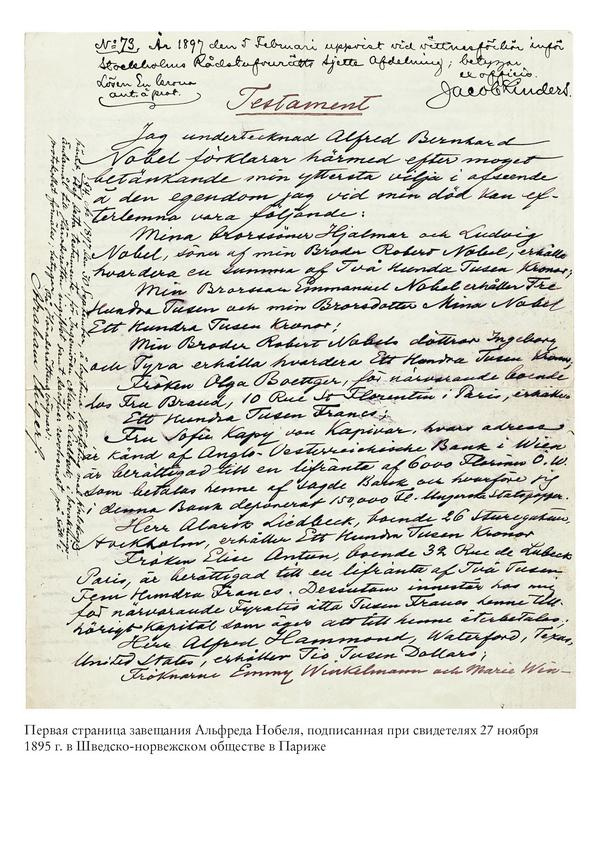 No 73, År 1897 den 5 Februari uppvist vid vittnesförhör inför
Stockholms Rådstufvurätts Sjette Afdelning; betygar
ex officio.
Lösen En krona
ant. å prot.
Jacob Linders.
Testament
Jag undertecknad Alfred Bernhard
Nobel förklarar härmed efter moget
betänkande min yttersta vilja i afseende
å den egendom jag vid min död kan ef-
terlemna vara följande:
Mina Brorssöner Hjalmar och Ludvig
Nobel, söner af min Broder Robert Nobel, erhålla
hvardera en summa af Två Hundra Tusen Kronor;
Min Brorsson Emmanuel Nobel erhåller Tre
Hundra Tusen och min Brorsdotter Mina Nobel
Ett Hundra Tusen Kronor;
Min Broder Robert Nobels döttrar Ingeborg
och Tyra erhålla hvardera Ett Hundra Tusen Kronor;
Fröken Olga Boettger, för närvarande boende
hos Fru Brand, 10 Rue St Florentin i Paris, erhåller
Ett Hundra Tusen Francs;
Fru Sofie Kapy von Kapivar, hvars adress
är känd af Anglo-Oesterreichische Bank i Wien
är berättigad till en lifränta af 6000 Florins Ö.W.
som betalas henne af sagde Bank och hvarföre jag
i denna Bank deponerat 150,000 Fl. i Ungerska Statspapper.
Herr Alarik Liedbeck, boende 26 Sturegatan,
Stockholm, erhåller Ett Hundra Tusen Kronor
Fröken Elise Antun, boende 32 Rue de Lubeck
Paris, är berättigad till en lifränta af Två Tusen
Fem Hundra Francs. Desutom innestår hos mig
för närvarande Fyratio åtta Tusen Francs henne till-
hörigt kapital som äges att till henne återbetalas;
Herr Alfred Hammond, Waterford, Texas,
United States, erhåller Tio Tusen Dollars;
Fröknarne Emmy Winkelmann och Marie Win-
Первая страница завещания Альфреда Нобеля, подписанная при свидетелях 27 ноября
1895 г. в Шведско-норвежском обществе в Париже